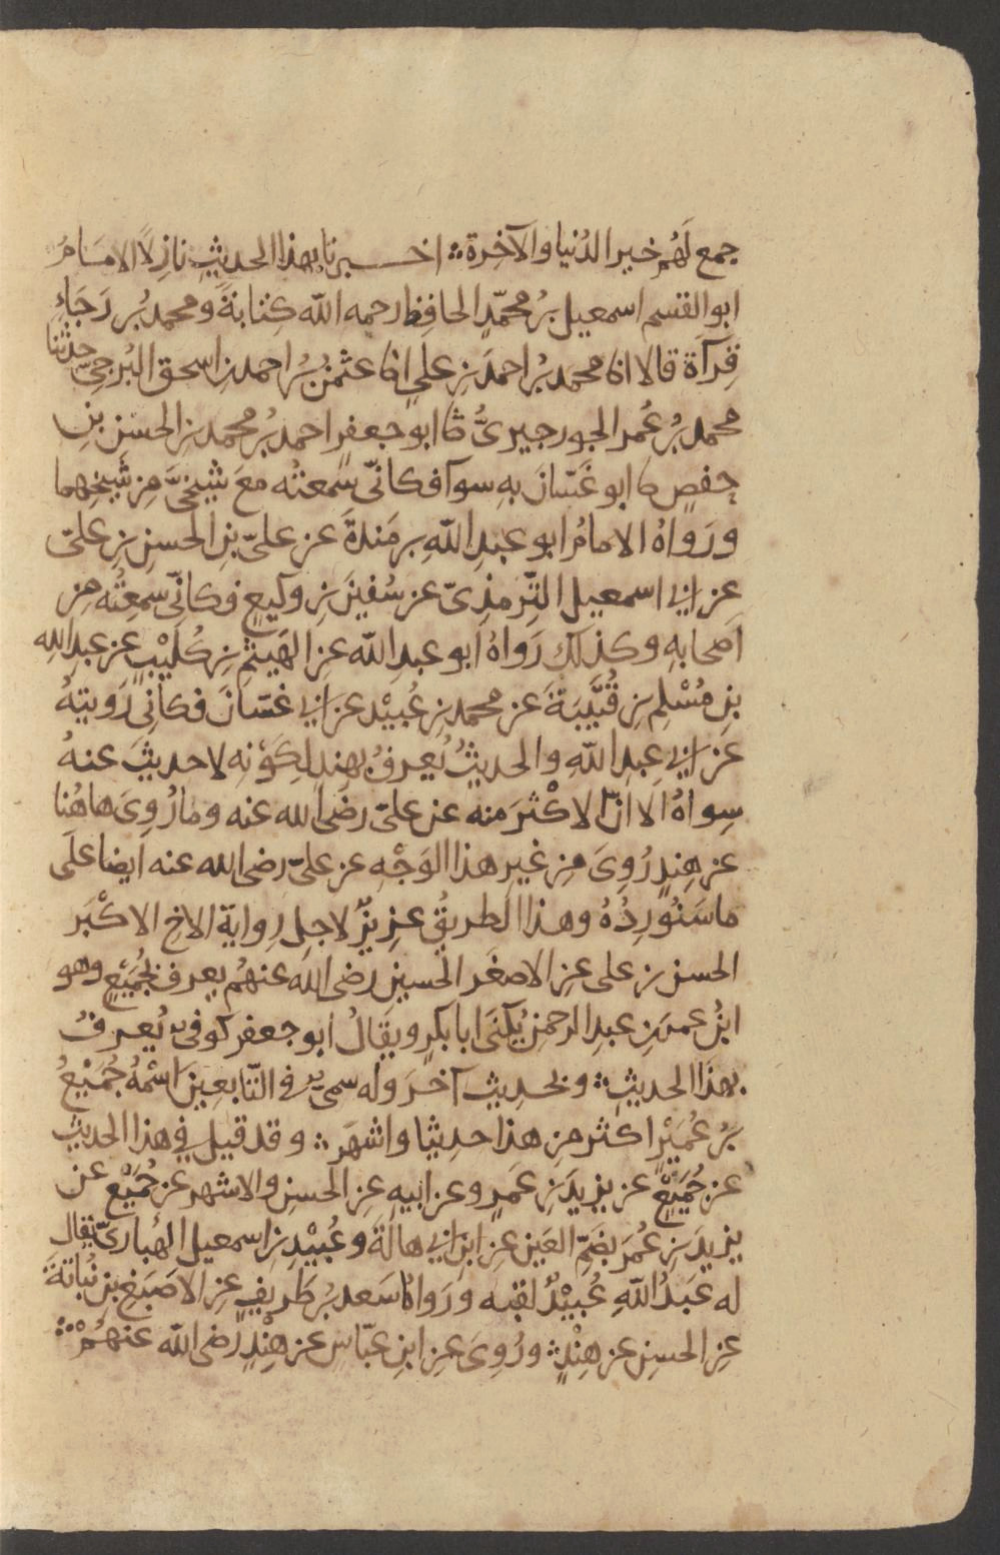 جمع لَهُم خير الدُنيا والآخِرة ؞ اخـــبرنا بهذا الحديثِ نازِلاً الامَامُ
ابو القسم اسمعيل بنُ محمّدٍ الحافِظ رحمه الله كِتابةً ومحمد بُن رَجَاءٍ
قِرآةً قالا انا محمد بُن احمدَ بنِ علي انا عثمنُ بنُ احمد بن اسحق البُرجِيّ حدثنا
محمد بنُ عُمر الجورجيريُّ ثا ابو جعفرٍ احمد بنُ محمد بن الحسَنِ بنِ
حفصٍ ثا ابو غَسّانَ بهِ سوآ فكانّى سَمعتُه مَعَ شيخَىَّ مِن شَيخِهما
ورَواهُ الامامُ ابو عبدِ اللّهِ بن مَندةَ عن علىّ بنِ الحسنِ بنِ علىّ
عن ابى اسمعيل التِّرمذِىّ عن سُفينَ بنِ وكيعٍ فكانّى سَمِعتُه مِن
اصحابهِ وكذلك رَواهُ ابو عبدِ اللّه عن الهَيثمِ بنِ كُلَيْبٍ عن عبدِ الله
بنِ مُسْلِمِ بنِ قُتَيبَةَ عن محمد بنِ عُبيْد عن ابى غسّانَ فكانى رَويتهُ
عن ابى عبدِ اللّهِ والحديثُ يُعرفُ بهندٍ لِكَوْنِه لا حديثَ عنهُ
سِواهُ الا انّ الاكْثرَ منه عن علىّ رضَى الله عنه وما رُوِىَ هاهُنا
عن هِندٍ رُوِىَ مِن غيرِ هذا الوَجْهِ عن علىّ رضى الله عنه ايضا علَى
ما سَنُورِدُهُ وهذا الطريقُ عزيزٌ لاجلِ رِواية الاخِ الاكْبَر
الحسن بن على عن الاصغَر الحُسين رضى الله عنهُم يعرف بجُمَيْعٍ وهو
ابنُ عمر بنِ عبدِ الرحمن يُكنَى ابا بكرٍ ويقالُ ابو جعفر كوفىٌ يُعرفُ
بهذا الحديثِ ؞ وبحديث آخرَ وله سمىٌّ فى التّابعِينَ اسْمُهُ جُمَيْعُ
بنُ عُمَيْرٍ اكثر مِن هذا حدِيثا واشهَر ؞ وقد قيل فى هذا الحديثِ
عن جُمَيْعٍ عن يزيدَ بنِ عَمرٍو عن ابيهِ عنِ الحسنِ والاشهر عن جُمَيْع عن
يزيدَ بنِ عُمَرَ بضَمِّ العَين عنِ ابنِ ابى هالةَ وعُبيْدِ بن اسمعيل الهُبارىّ يقال
له عَبدُ اللّهِ عُبيْدٌ لقبه ورَواهُ سَعد بنُ طَريفٍ عن الاَصبَغِ بنِ نُباتةَ
عن الحسنِ عن هِنْدٍ ؞ ورُوِىَ عن ابنِ عبّاسٍ عن هِنْدٍ رضى اللّه عنهُمْ ؞